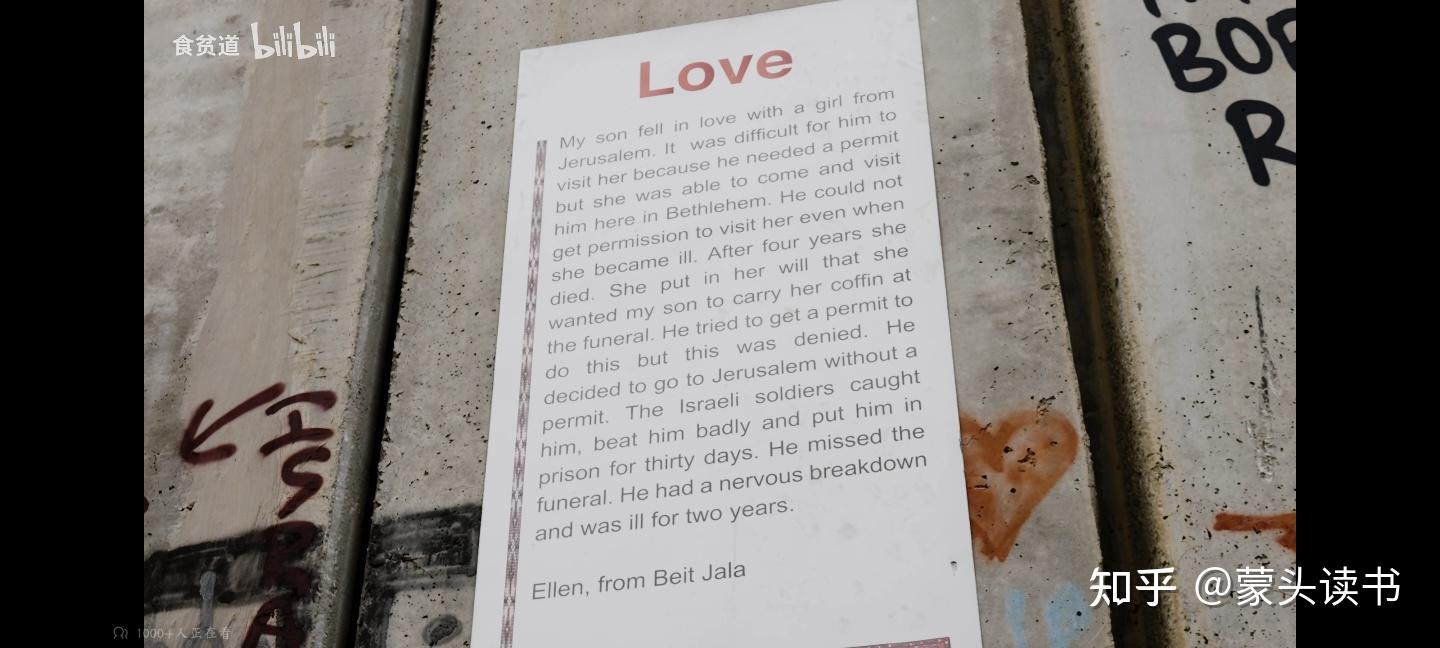 食贫道 bilibili
Love
My son fell in love with a girl from
Jerusalem. It was difficult for him to
visit her because he needed a permit
but she was able to come and visit
him here in Bethlehem. He could not
get permission to visit her even when
she became ill. After four years she
died. She put in her will that she
wanted my son to carry her coffin at
the funeral. He tried to get a permit to
do this but this was denied. He
decided to go to Jerusalem without a
permit. The Israeli soldiers caught
him, beat him badly and put him in
prison for thirty days. He missed the
funeral. He had a nervous breakdown
and was ill for two years.
Ellen, from Beit Jala
ISRA
BOR
R
1000+人正在看
知乎 @蒙头读书